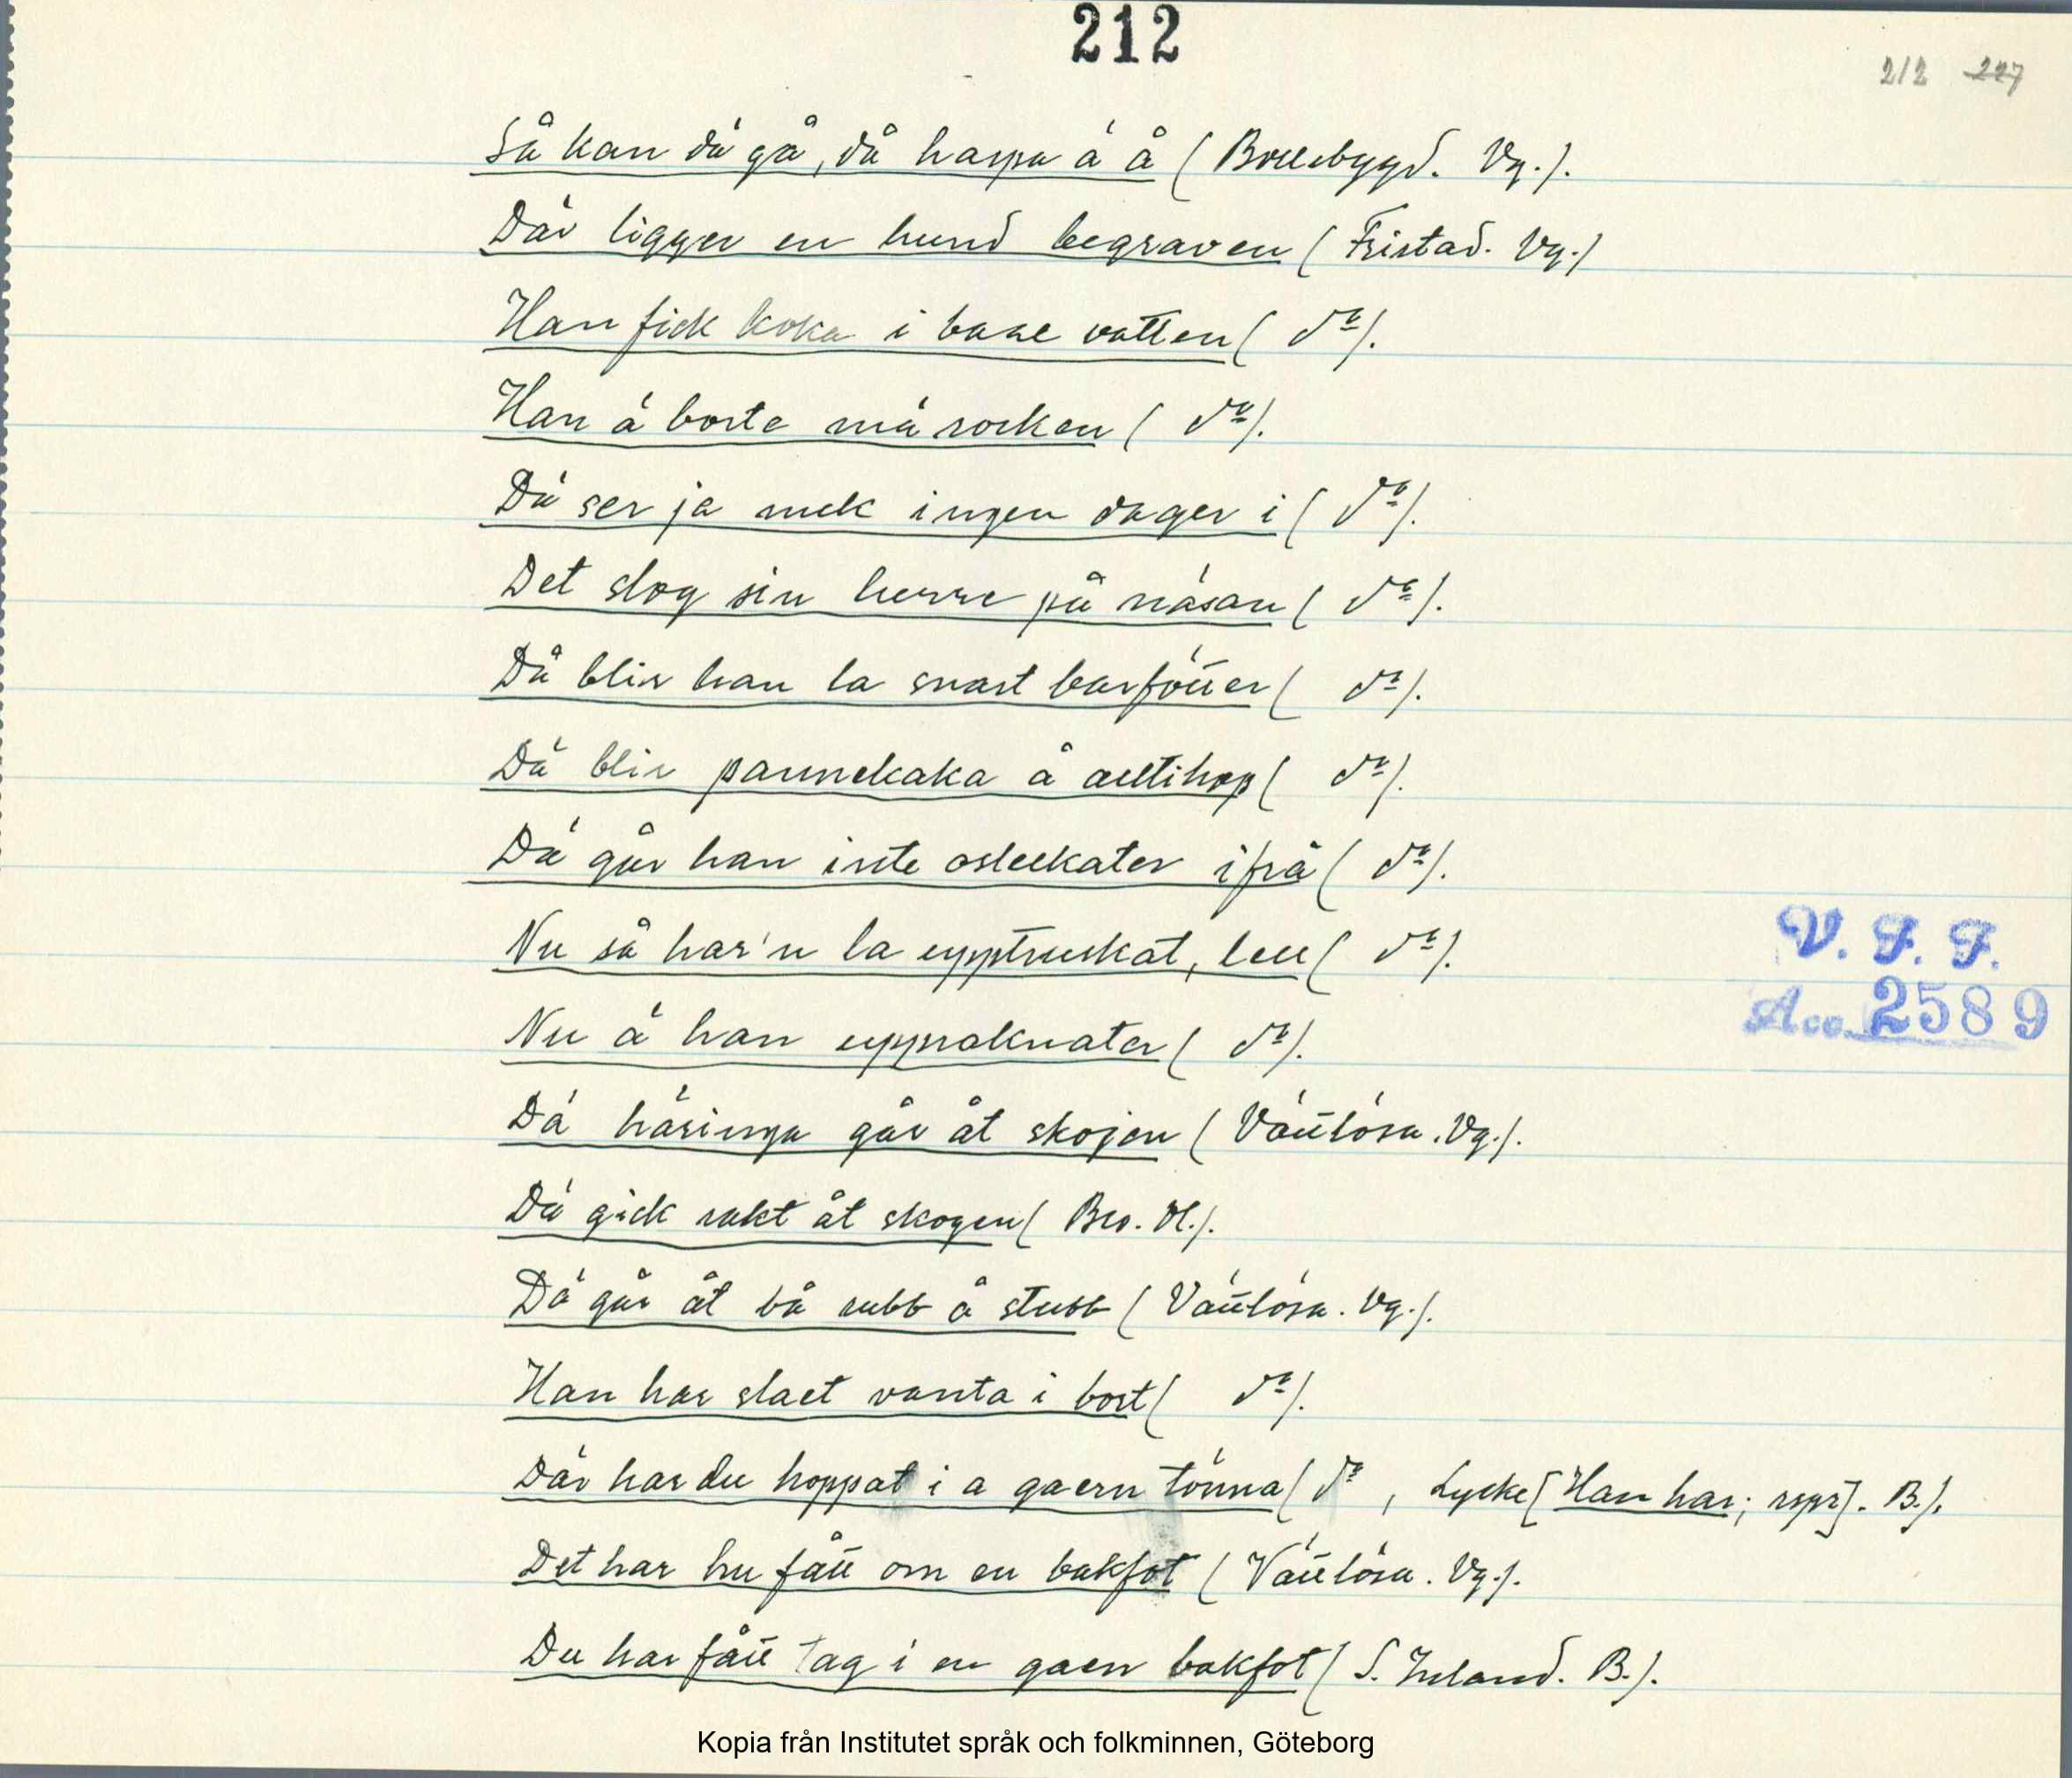 212
212 227
Så kan dä gå, då haspa ä å (Bollebygd. Vg.).
Där ligger en hund begraven (Fristad. Vg.)
Han fick koka i bare vatten (do).
Han ä borte mä rocken (do).
Dä ser ja mek ingen dager i (do).
Det slog sin herre på näsan (do).
Då blir han la snart barfötter (do).
Dä blir pannekaka å alltihop (do).
Dä går han inte osleekater ifrå (do).
Nu så har'n la upptruskat, len (do).
Nu ä han uppraknater (do).
Dä häringa går åt skojen (Väütlösa. Vg.).
Dä gick rakt åt skogen (Bro. Hl.).
Dä går åt bå rubb å stubb (Vättlösa. Vg.).
Han har slaet vanta i bort (do).
Där har du hoppat i a gaern tönna (do, Lycke [Han har; rspr]. B.).
Det har hu fått om en bakfot (Vättlösa. Vg.).
Du har fått tag i en gaen bakfot (S. Inland. B.).
V. F. F.
Acc. 2589
Kopia från Institutet språk och folkminnen, Göteborg